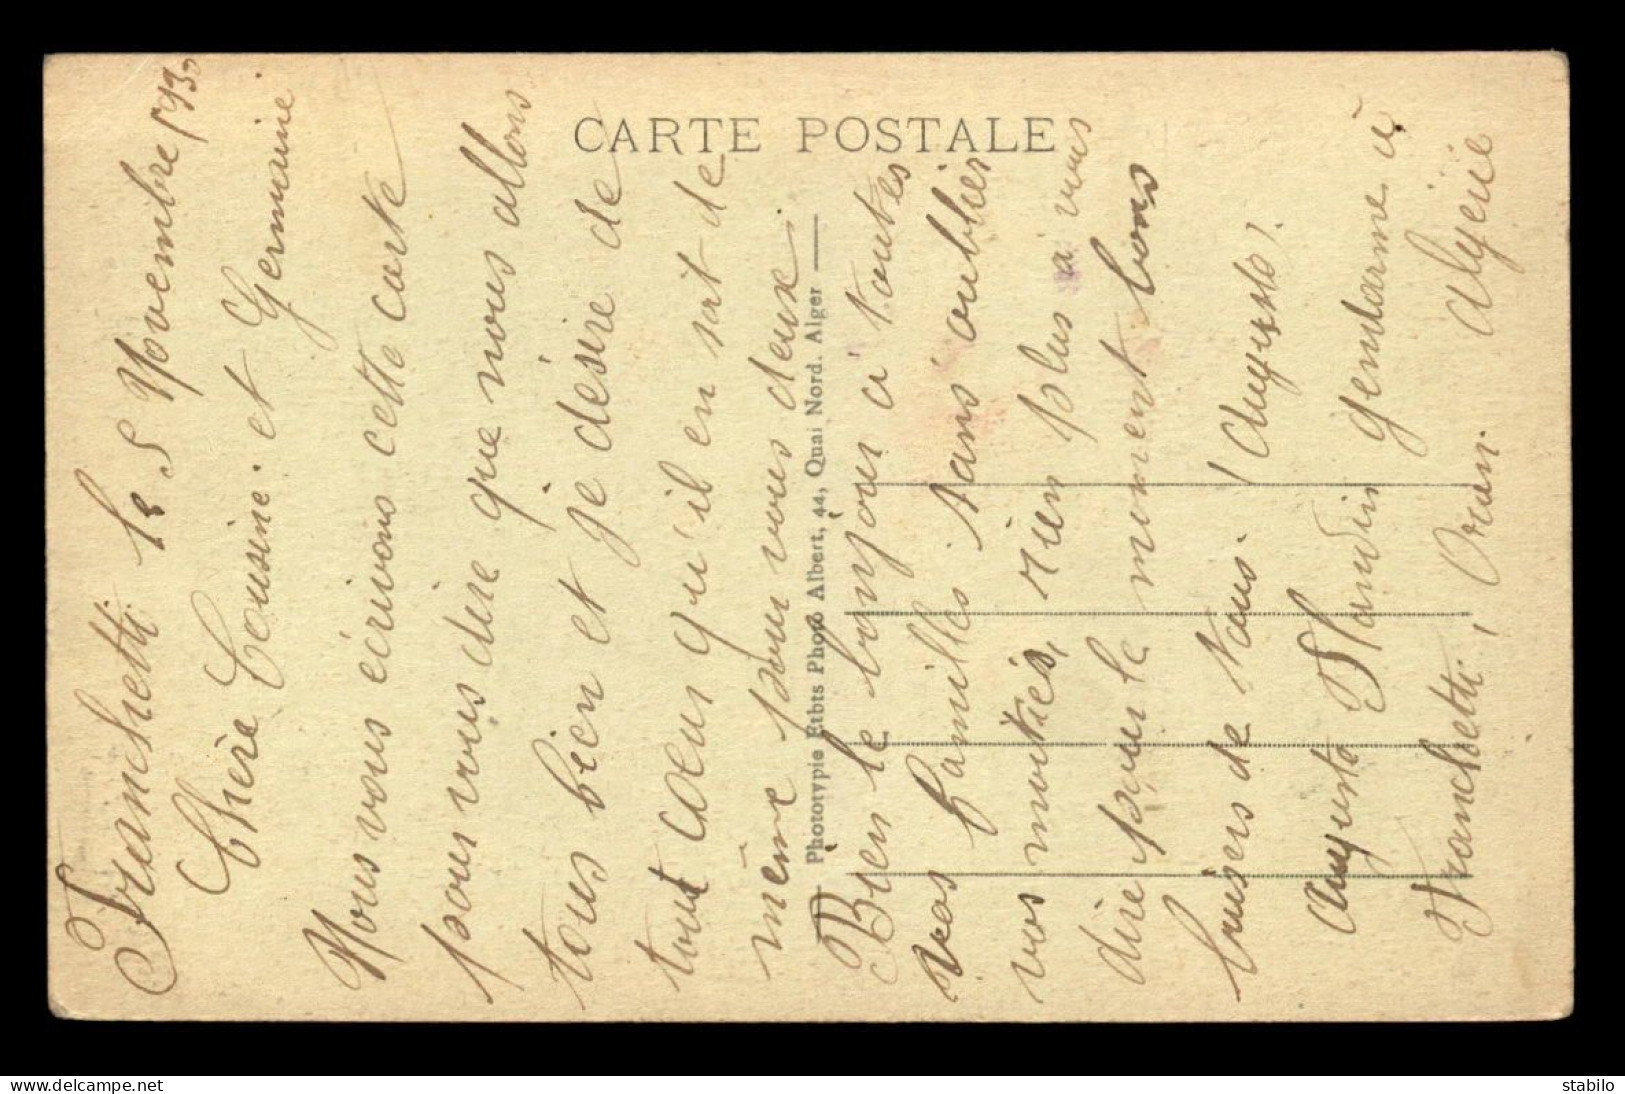 Franchetti le 5 Novembre 1930
Chère Cousine. et Germaine
Nous vous écrivons cette carte
pour vous dire que nous allons
tous bien et je désire de
tout cœur qu'il en soit de
même pour vous deux
Bien le bonjour à toutes
vos familles sans oublier
vos moitiés, rien plus a vous
dire pour le moment bons
baisers de tous. (Auguste).
Auguste Blandin gendarme à
Franchetti, Oran. Algérie
CARTE POSTALE
Phototypie Etbts Photo Albert, 44, Quai Nord. Alger
delcampe.net
stabilo